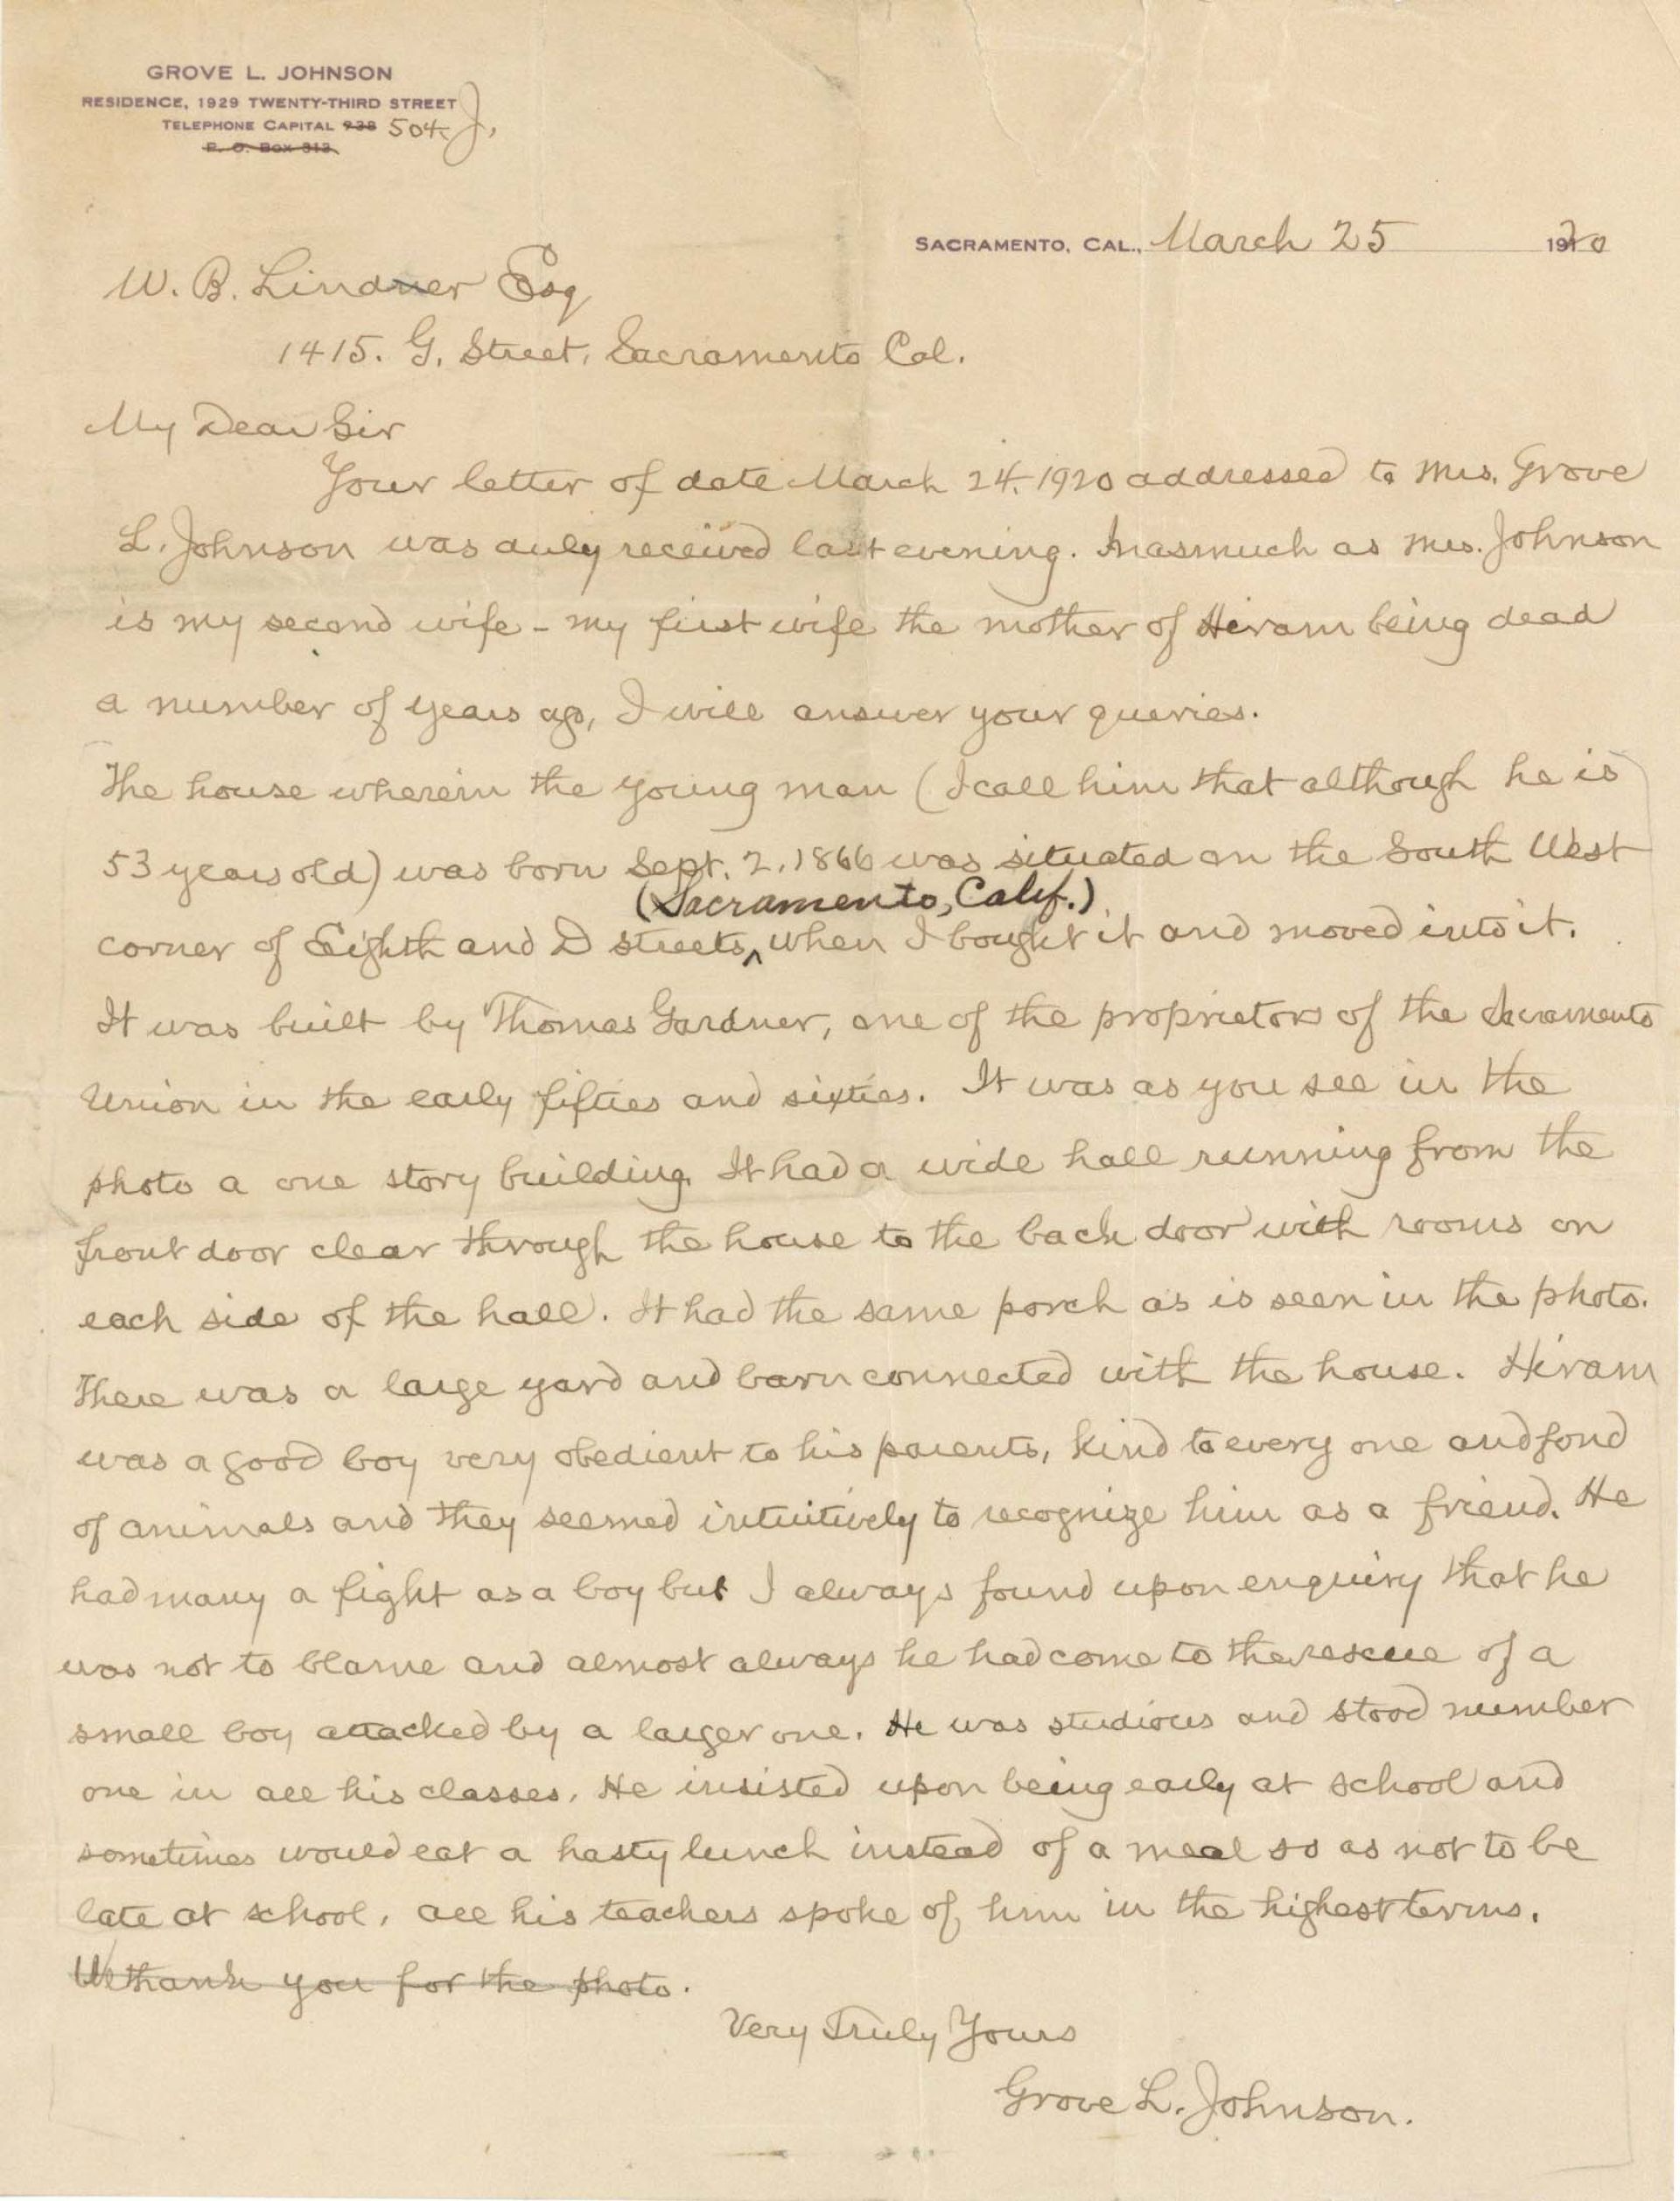 GROVE L. JOHNSON
RESIDENCE, 1929 TWENTY-THIRD STREET
TELEPHONE CAPITAL 938 504 J.
P. O. BOX 313
SACRAMENTO, CAL., March 25 1920
W. B. Lindner Esq
1415. G. Street, Sacramento Cal.
My Dear Sir
Your letter of date March 24. 1920 addressed to Mrs. Grove
L. Johnson was duly received last evening. Inasmuch as Mrs. Johnson
is my second wife - my first wife the mother of Hiram being dead
a number of years ago, I will answer your queries.
The house wherein the young man (I call him that although he is
53 years old) was born Sept. 2. 1866 was situated on the South West
(Sacramento, Calif.)
corner of Eighth and D streets, ^ when I bought it and moved into it.
It was built by Thomas Gardner, one of the proprietors of the Sacramento
Union in the early fifties and sixties. It was as you see in the
photo a one story building. It had a wide hall running from the
front door clear through the house to the back door with rooms on
each side of the hall. It had the same porch as is seen in the photo.
There was a large yard and barn connected with the house. Hiram
was a good boy very obedient to his parents, kind to every one and fond
of animals and they seemed intuitively to recognize him as a friend. He
had many a fight as a boy but I always found upon enquiry that he
was not to blame and almost always he had come to the rescue of a
small boy attacked by a larger one. He was studious and stood number
one in all his classes. He insisted upon being early at school and
sometimes would eat a hasty lunch instead of a meal so as not to be
late at school. All his teachers spoke of him in the highest terms.
We thank you for the photo.
Very Truly Yours
Grove L. Johnson.